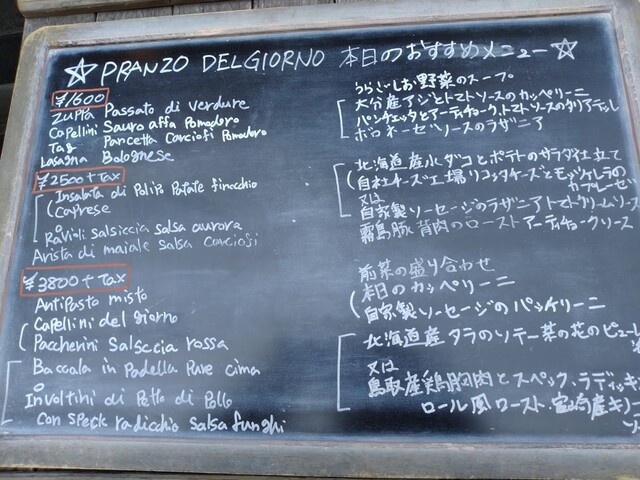 ☆PRANZO DELGIORNO 本日のおすすめメニュー☆
¥1600
Zuppa Passato di verdure
Capellini Sauro affa Pomodoro
Tag Pancetta Carciofi Pomodoro
Lasagna Bolognese
うらごしお野菜のスープ
大分産アジとトマトソースのカッペリーニ
パンチェッタとアーティチョーク、トマトソースのタリアテッレ
ボロネーゼソースのラザニア
¥2500+Tax
Insalata di Polipi Patate finocchio
Caprese
o
Ravioli salsiccia salsa aurora
Arista di maiale salsa Carciofi
北海道産水ダコとポテトのサラダ仕立て
自社チーズ工場リコッタチーズとモッツァレラの
カプレーゼ
又は
自家製ソーセージのラザニアトマトクリームソース
霧島豚 背肉のロースト アーティチョークソース
¥3800+Tax
Antipasto misto
Capellini del giorno
Paccherini Salsccia rossa
Baccala in Padella Pure cima
o
Involtini di Petto di Pollo
con speck radicchio salsa funghi
前菜の盛り合わせ
本日のカッペリーニ
自家製ソーセージのパッケリーニ
北海道産タラのソテー菜の花のピュ
又は
鳥取産鶏胸肉とスペック、ラディッキ
ロール風ロースト・宮崎産キノ